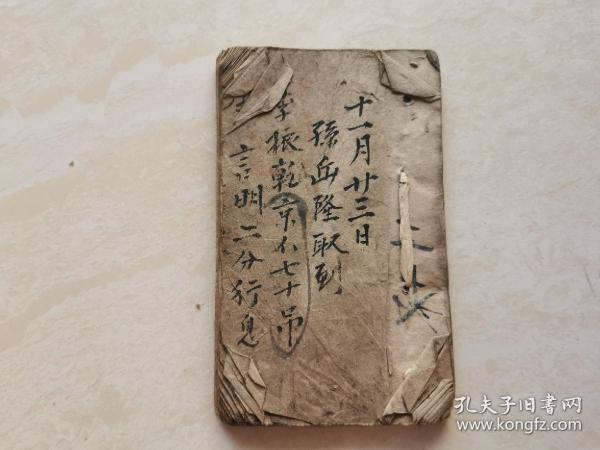 十一月廿三日
孫岳隆取到
李振乾京不七十吊
言明二分行息
孔夫子旧书网
www.kongfz.com